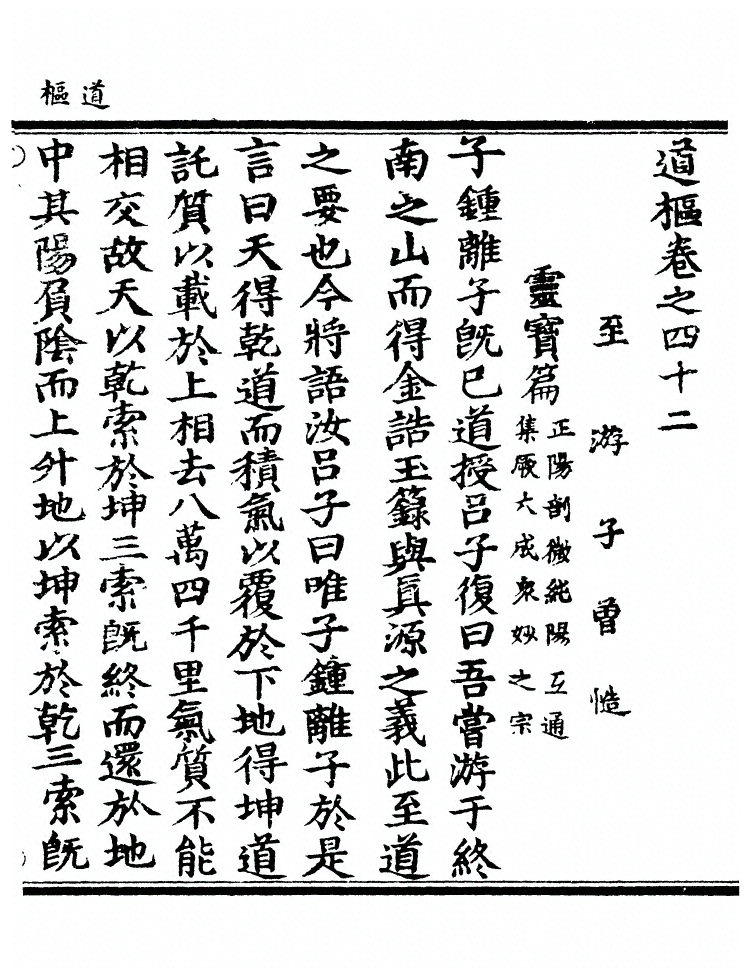 道樞
道樞卷之四十二
至游子曾慥
靈寶篇
正陽剖微純陽互通
集厥大成衆妙之宗
子鍾離子旣已道授呂子復曰吾嘗游于終
南之山而得金誥玉籙與眞源之義此至道
之要也今將語汝呂子曰唯子鍾離子於是
言曰天得乾道而積氣以覆於下地得坤道
託質以載於上相去八萬四千里氣質不能
相交故天以乾索於坤三索旣終而還於地
中其陽負陰而上升地以坤索於乾三索旣